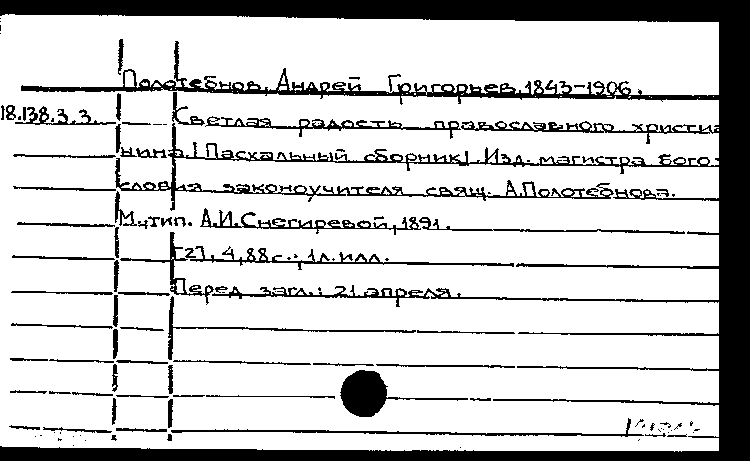 Полотебнов, Андрей Григорьев, 1843-1906.
18.138.3.3. Светлая радость православного христиа
нина. [Пасхальный сборник]. Изд. магистра бого-
словия законоучителя свящ. А.Полотебнова.
М., тип. А.И.Снегиревой, 1891.
[2], 4, 88 с., 1 л. илл.
Перед загл.: 21 апреля.